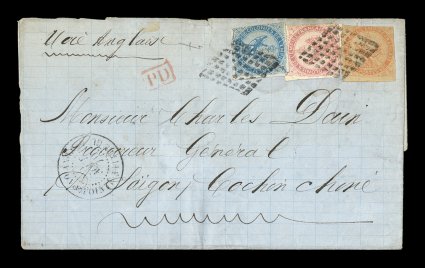 Voie Anglaise
PD
Monsieur Charles Dain
Procureur Général
Saïgon, Cochinchine